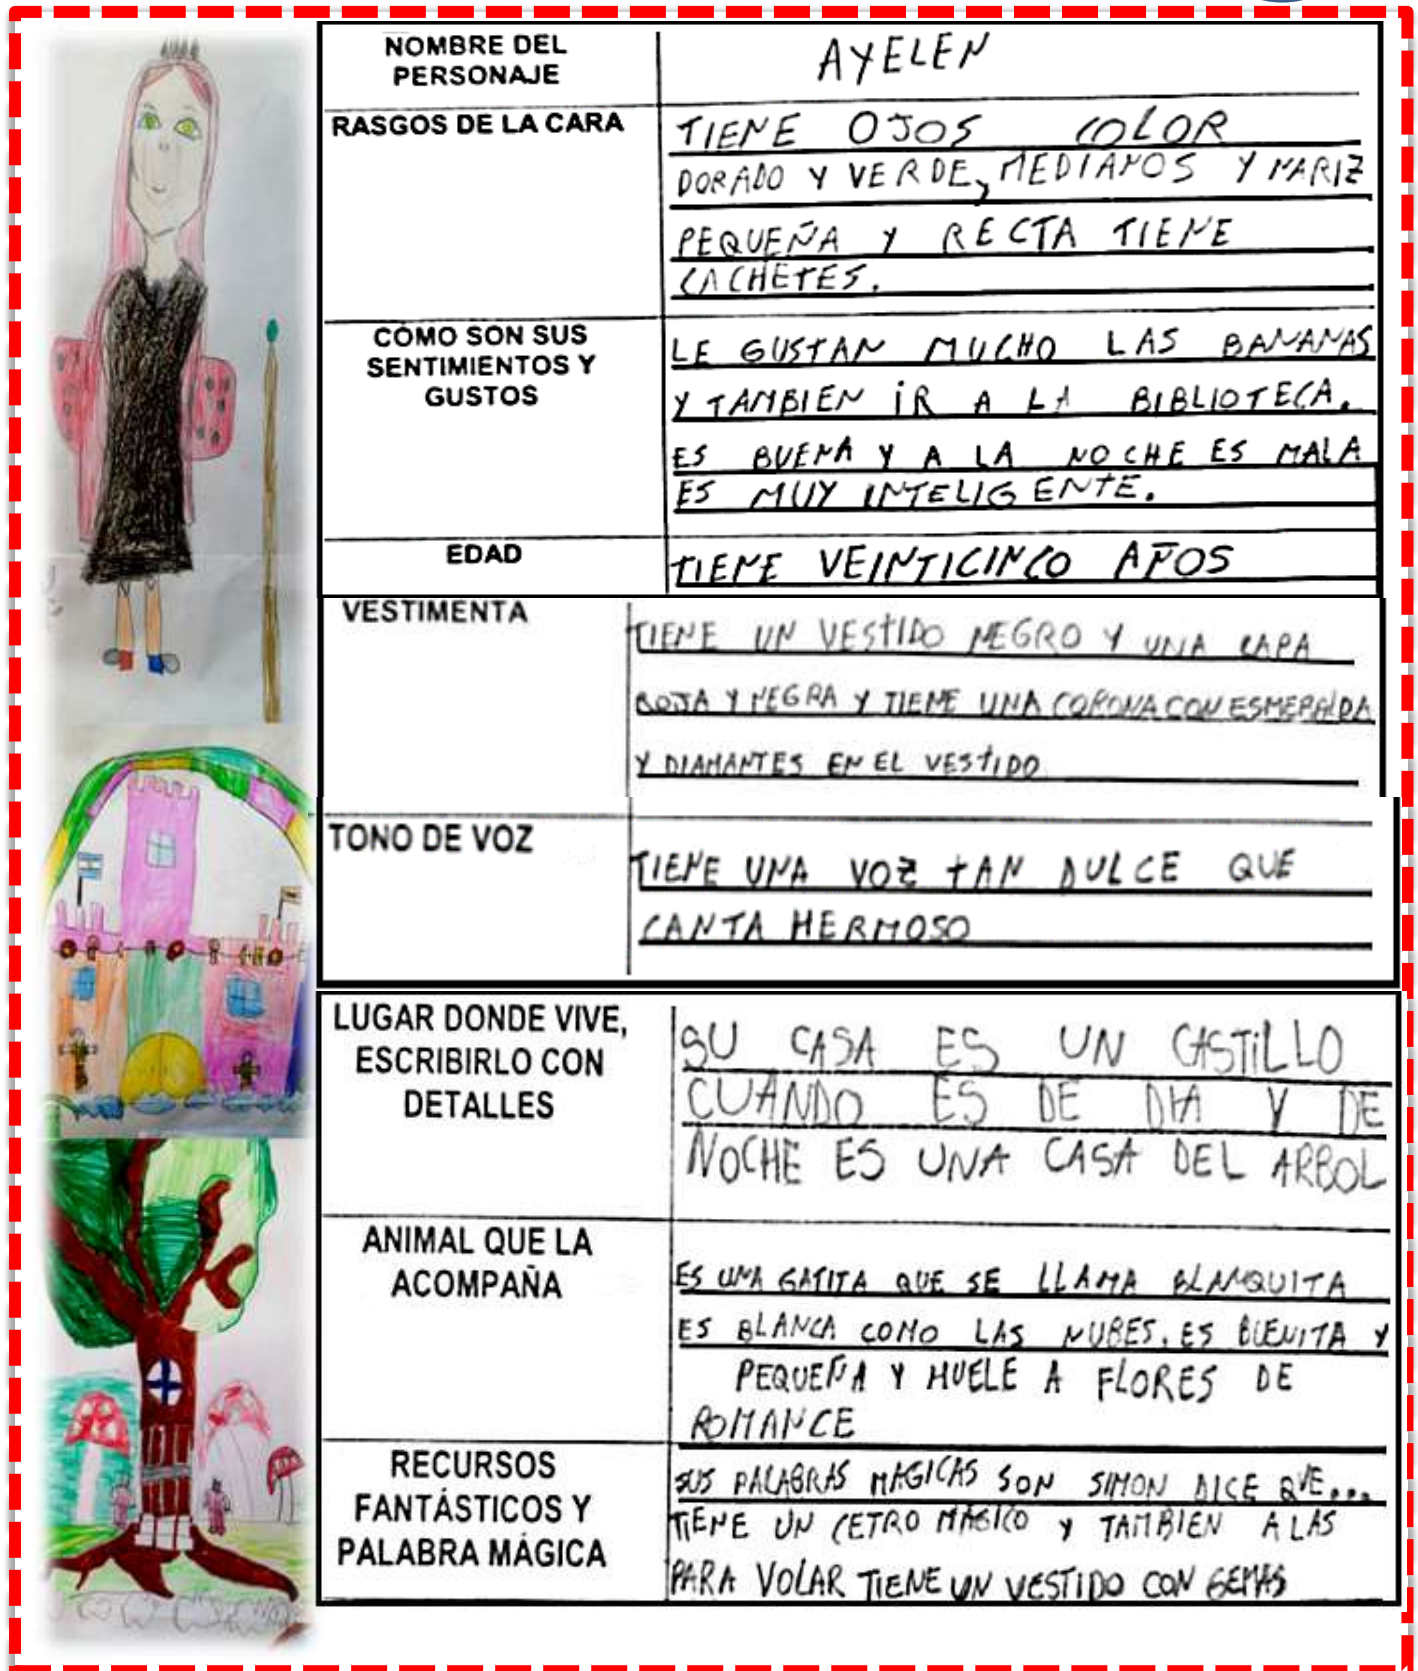 NOMBRE DEL
PERSONAJE
AYELEN
RASGOS DE LA CARA
TIENE OJOS COLOR
DORADO Y VERDE, MEDIANOS Y NARIZ
PEQUEÑA Y RECTA TIENE
CACHETES.
CÓMO SON SUS
SENTIMIENTOS Y
GUSTOS
LE GUSTAN MUCHO LAS BANANAS
Y TAMBIEN IR A LA BIBLIOTECA.
ES BUENA Y A LA NOCHE ES MALA
ES MUY INTELIGENTE.
EDAD
TIENE VEINTICINCO AÑOS
VESTIMENTA
TIENE UN VESTIDO NEGRO Y UNA CAPA
ROJA Y NEGRA Y TIENE UNA CORONA CON ESMERALDA
Y DIAMANTES EN EL VESTIDO
TONO DE VOZ
TIENE UNA VOZ TAN DULCE QUE
CANTA HERMOSO
LUGAR DONDE VIVE,
ESCRIBIRLO CON
DETALLES
SU CASA ES UN CASTILLO
CUANDO ES DE DIA Y DE
NOCHE ES UNA CASA DEL ARBOL
ANIMAL QUE LA
ACOMPAÑA
ES UNA GATITA QUE SE LLAMA BLANQUITA
ES BLANCA COMO LAS NUBES. ES BUENITA Y
PEQUEÑA Y HUELE A FLORES DE
ROMANCE
RECURSOS
FANTÁSTICOS Y
PALABRA MÁGICA
SUS PALABRAS MAGICAS SON SIMON DICE QUE...
TIENE UN CETRO MÁGICO Y TAMBIEN ALAS
PARA VOLAR TIENE UN VESTIDO CON GEMAS